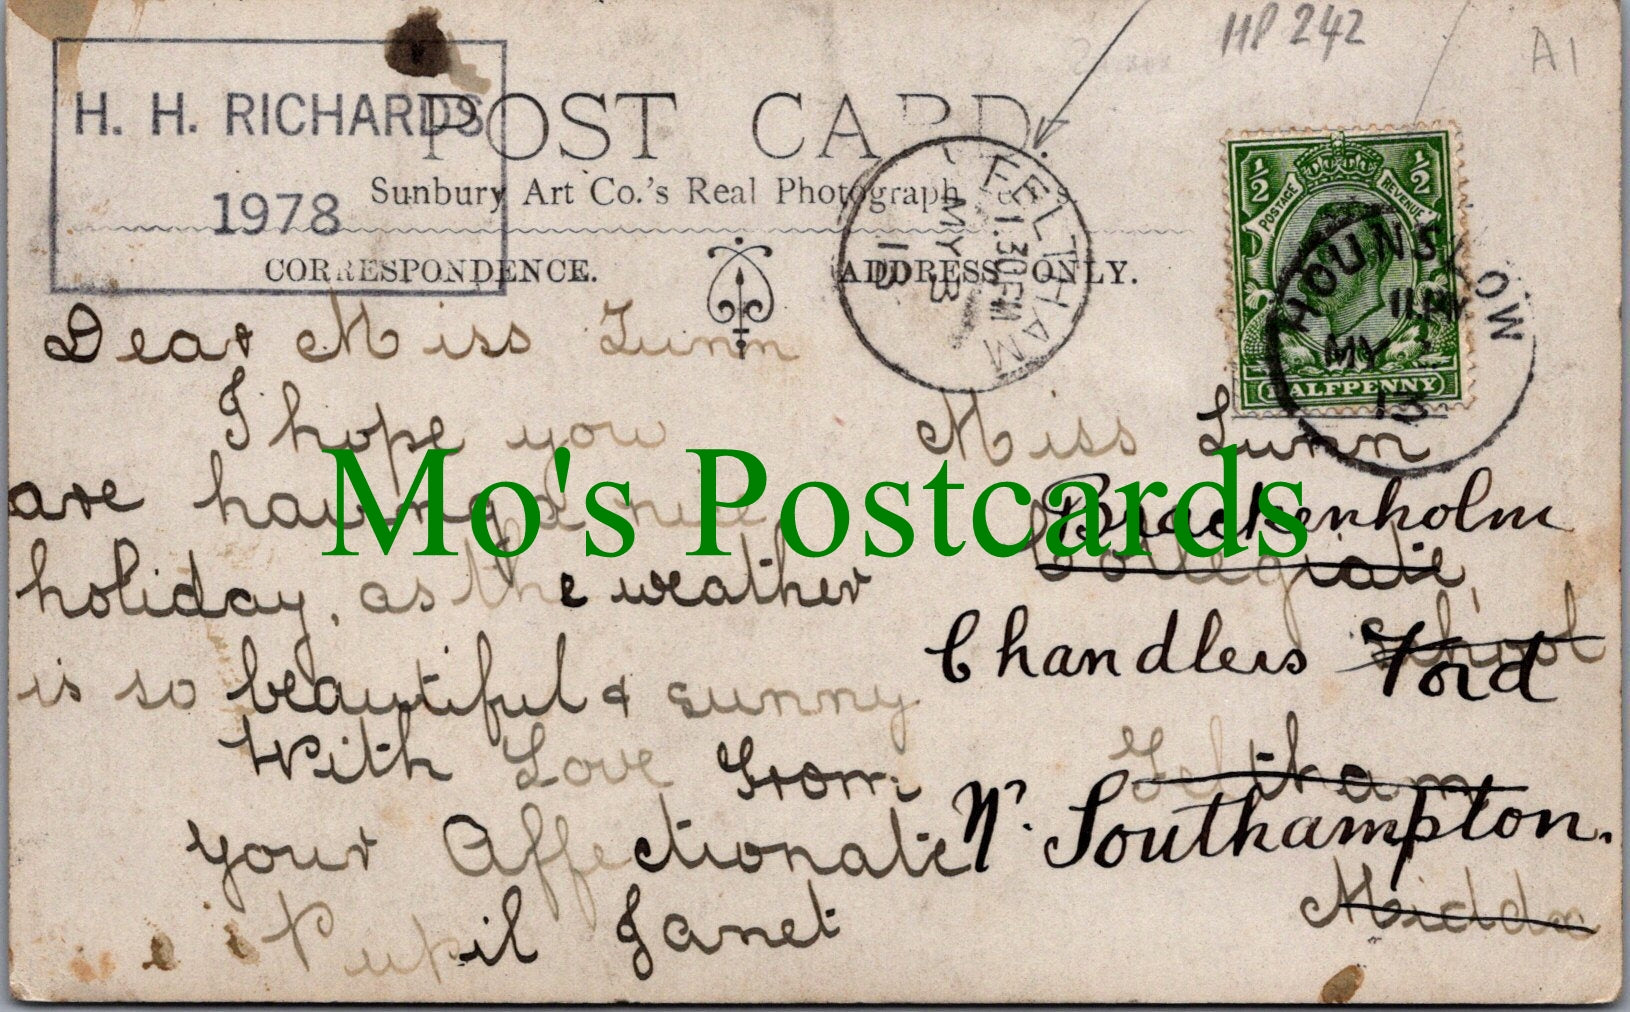 HP 242
A1
H. H. RICHARDS
1978
POST CARD.
Sunbury Art Co.'s Real Photograph
CORRESPONDENCE.
ADDRESS ONLY.
FELTHAM
11.30 PM
MY 3
13
½ ½
POSTAGE REVENUE
HALFPENNY
HOUNSLOW
MY
13
Dear Miss Lunn
I hope you
are having a nice
holiday, as the weather
is so beautiful & sunny
With Love From
your Affectionate
Pupil Janet
Miss Lunn
Brackenholm
Collegiate,
School
Chandlers Ford
Feltham
Nr. Southampton.
Middx
Mo's Postcards